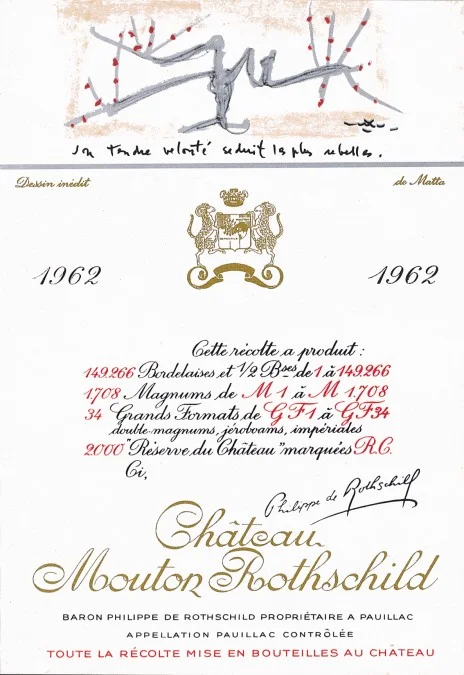 Son tendre velouté séduit les plus rebelles.
Dessin inédit de Matta
1962 1962
Cette récolte a produit :
149.266 Bordelaises et 1/2 Bses de 1 à 149.266
1.708 Magnums de M 1 à M 1.708
34 Grands Formats de G F 1 à G F 34
double-magnums, jéroboams, impériales
2000 "Réserve du Château" marquées R.C.
Ci,
Philippe de Rothschild
Château
Mouton Rothschild
BARON PHILIPPE DE ROTHSCHILD PROPRIÉTAIRE A PAUILLAC
APPELLATION PAUILLAC CONTRÔLÉE
TOUTE LA RÉCOLTE MISE EN BOUTEILLES AU CHÂTEAU